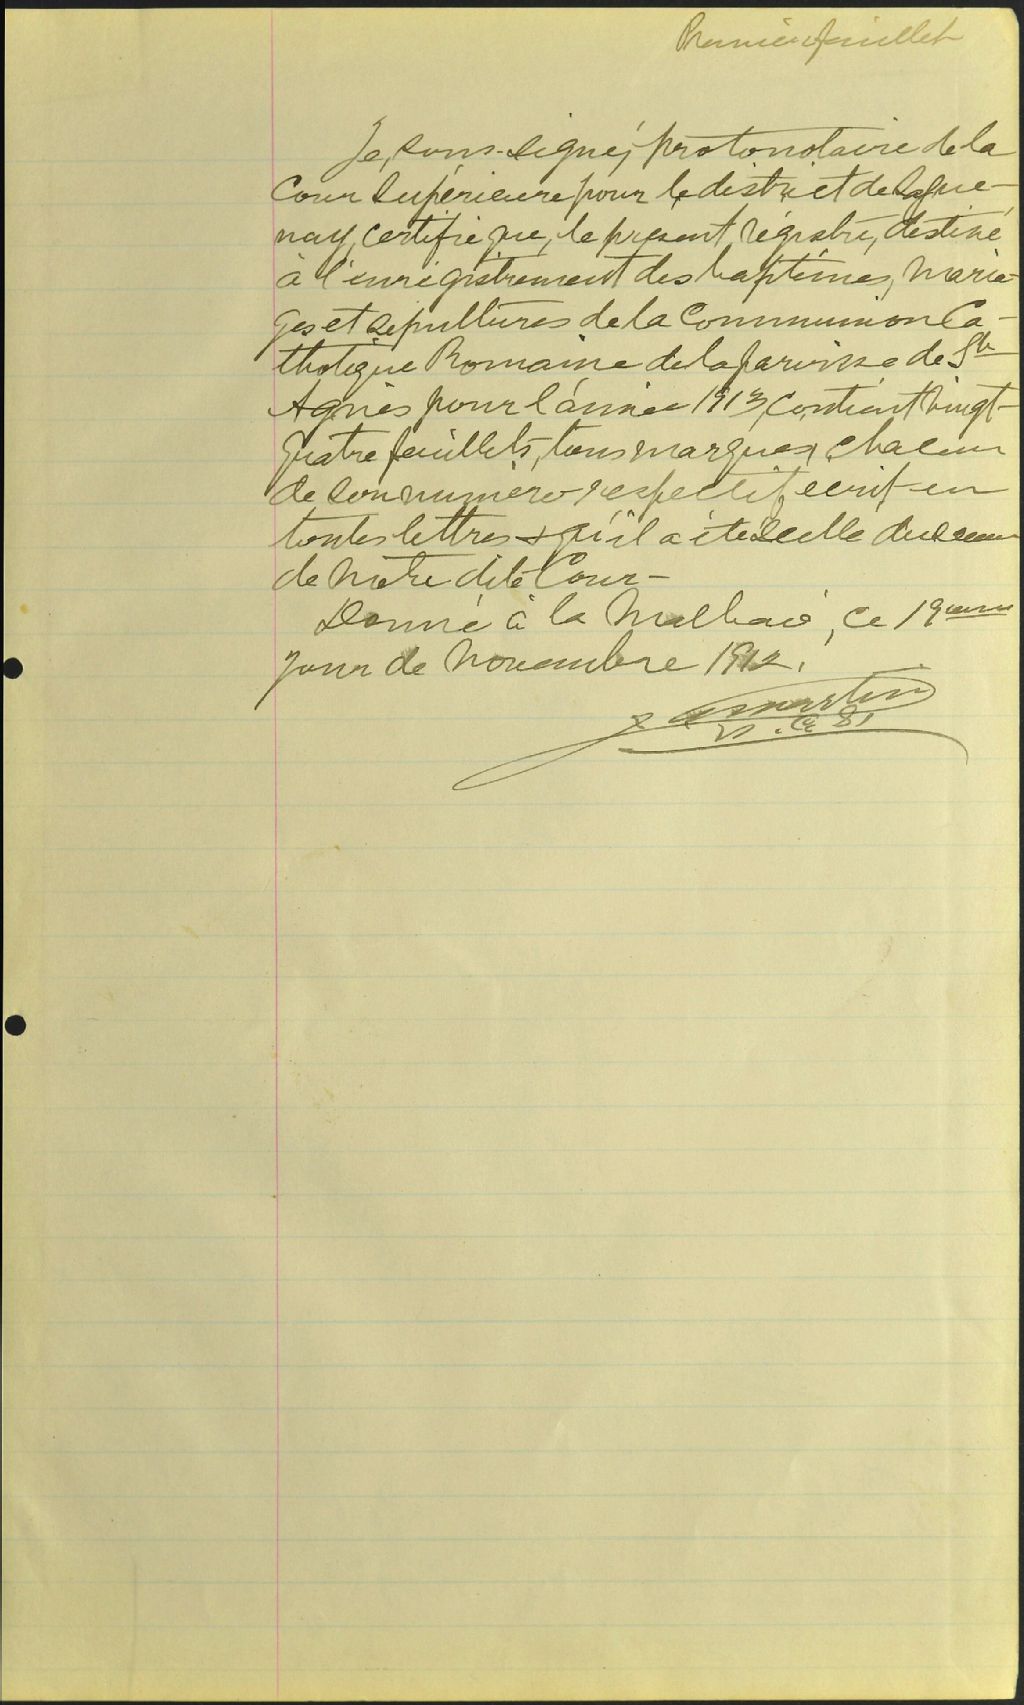 Premier feuillet
Je, sous-signé, protonotaire de la
Cour Supérieure pour le district de Sague-
nay, certifie que, le présent régistre, destiné
à l'enrégistrement des baptêmes, maria-
ges et sépultures de la Communion Ca-
tholique Romaine de la paroisse de Ste
Agnès pour l'année 1913, contient vingt-
quatre feuillets, tous marqués, chacun
de son numéro respectif, écrit en
toutes lettres & qu'il a été scellé du sceau
de notre dite Cour-
Donné à la Malbaie, ce 19ième
jour de Novembre 1912.
Martin